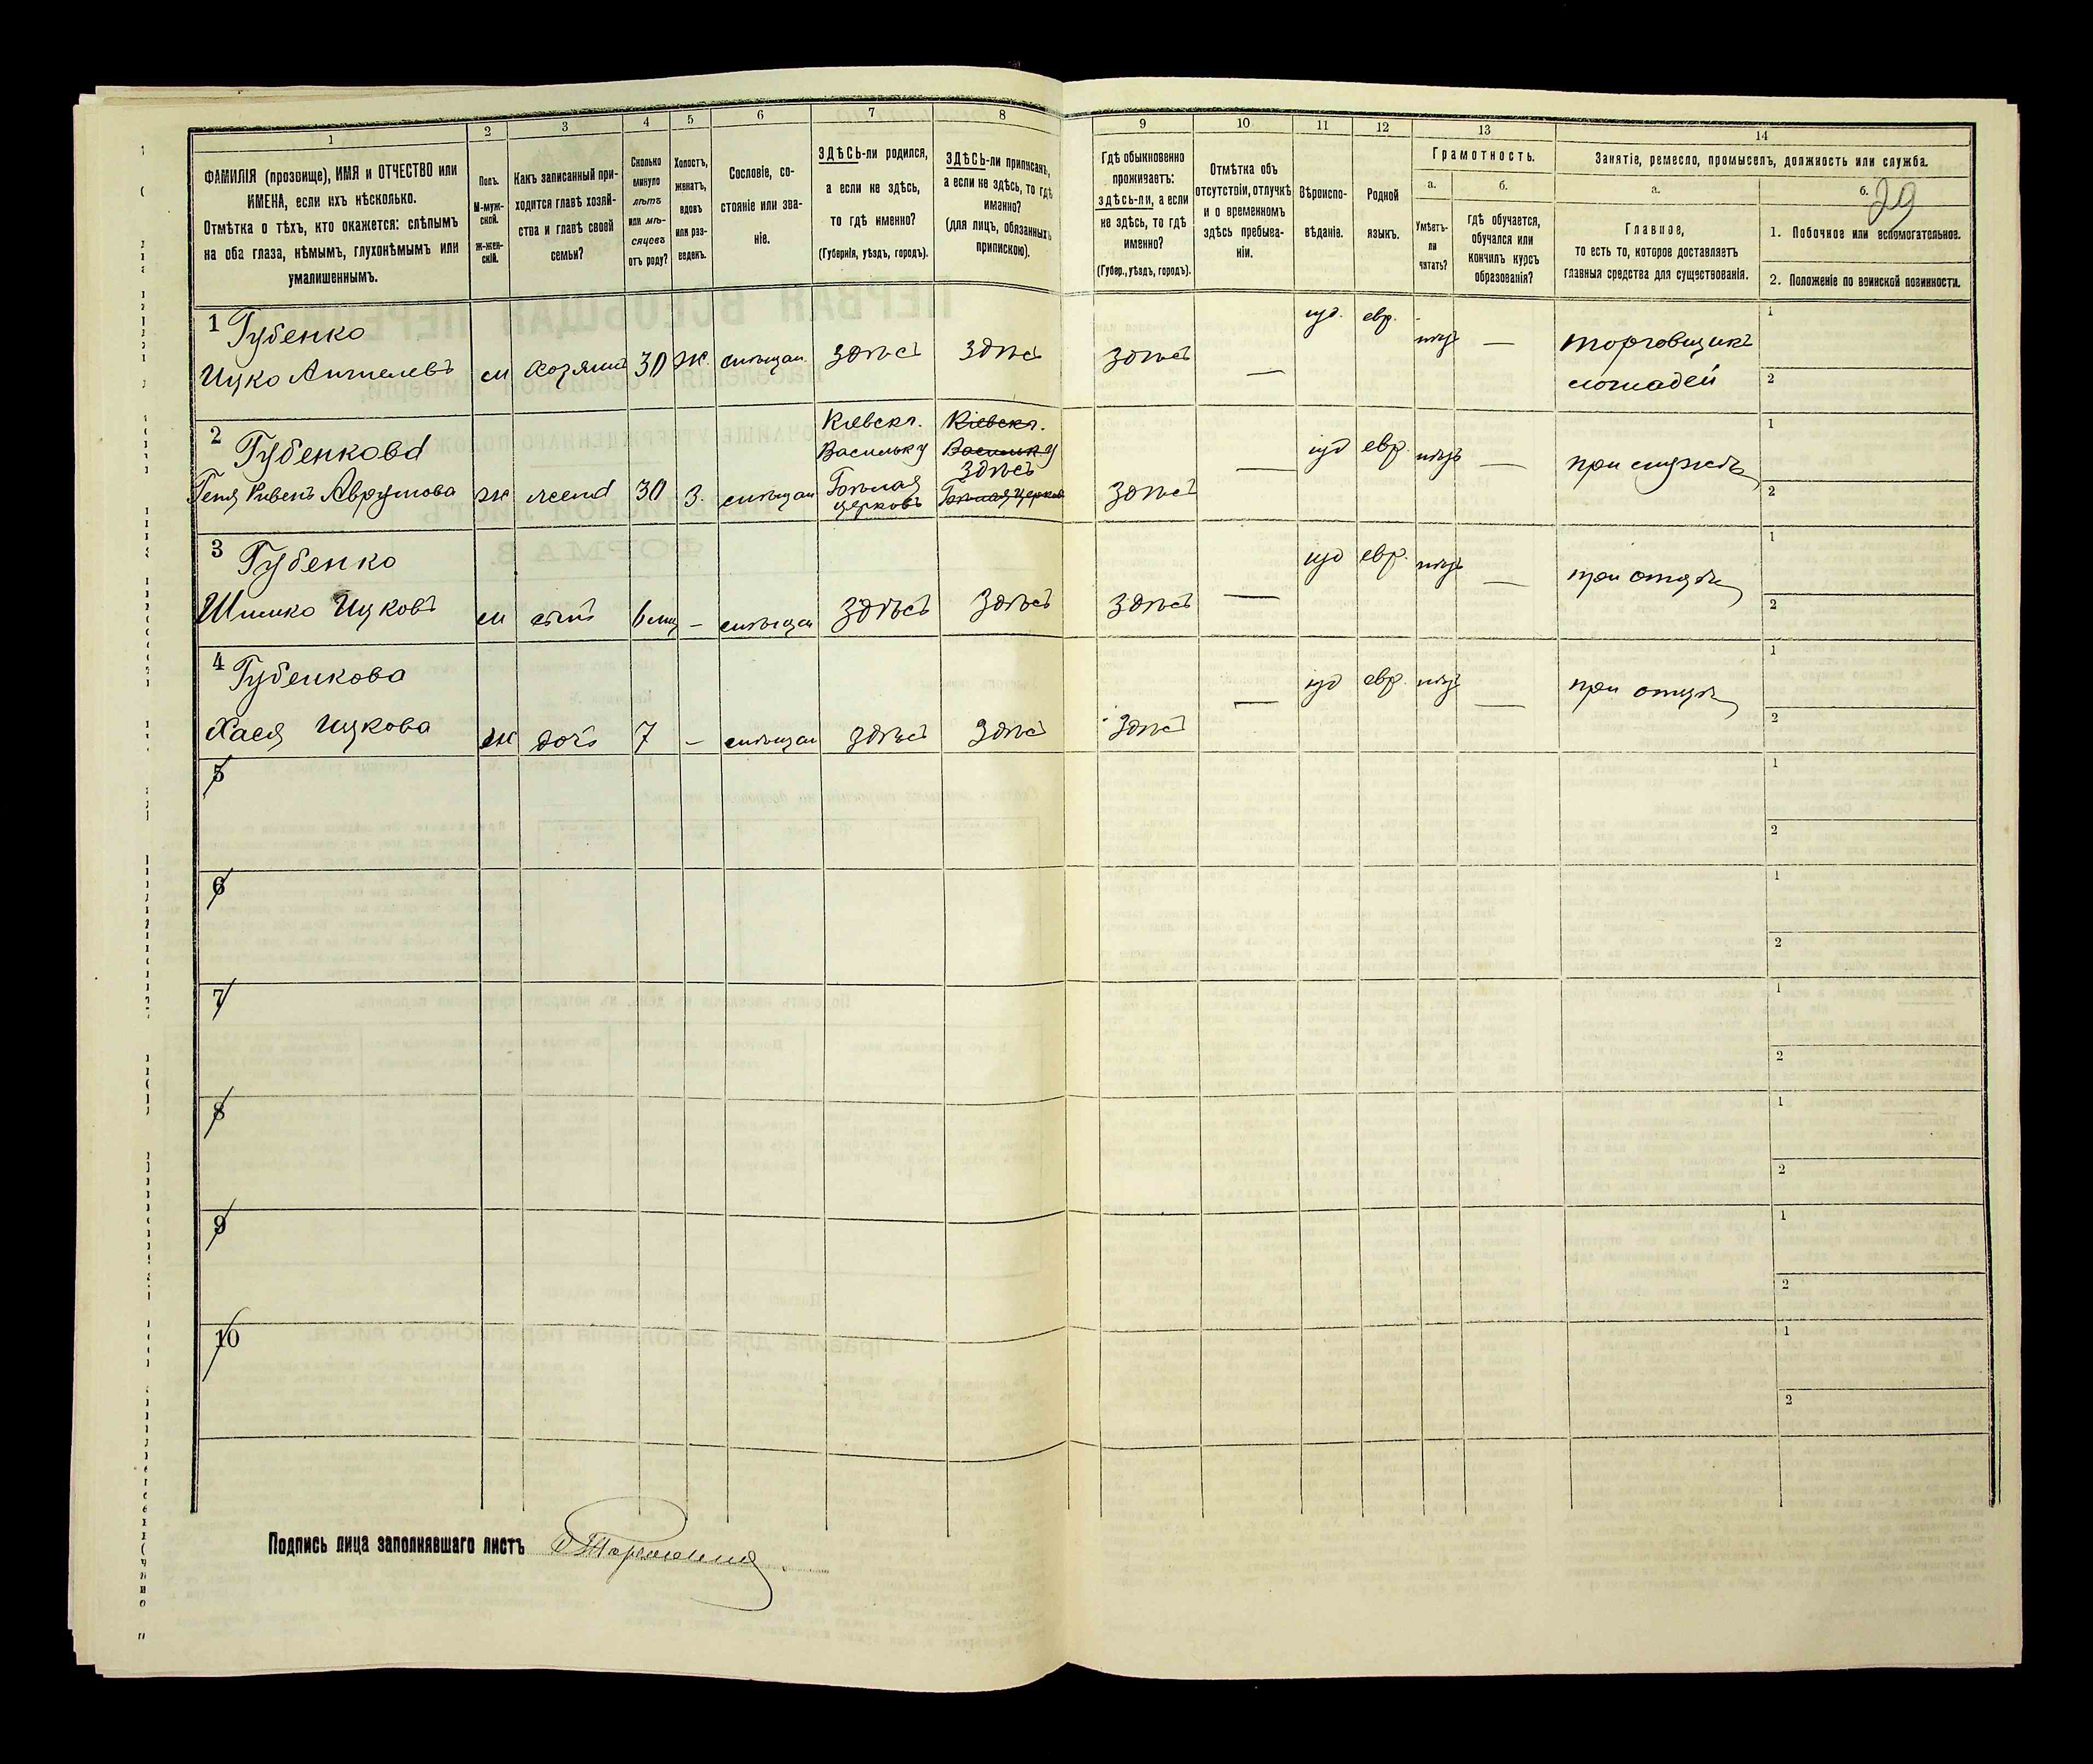 29
1
2
3
4
5
6
7
8
9
10
11
12
13
14
ФАМИЛІЯ (прозвище), ИМЯ и ОТЧЕСТВО или
ИМЕНА, если ихъ нѣсколько.
Отмѣтка о тѣхъ, кто окажется: слѣпымъ
на оба глаза, нѣмымъ, глухонѣмымъ или
умалишеннымъ.
Полъ.
М-муж-
ской.
Ж-жен-
скій.
Какъ записанный при-
ходится главѣ хозяй-
ства и главѣ своей
семьи?
Сколько
минуло
лѣтъ
или мѣ-
сяцевъ
отъ роду?
Холостъ,
женатъ,
вдовъ
или раз-
веденъ.
Сословіе, со-
стояніе или зва-
ніе.
ЗДѢСЬ-ли родился,
а если не здѣсь,
то гдѣ именно?
(Губернія, уѣздъ, городъ).
ЗДѢСЬ-ли приписанъ,
а если не здѣсь, то гдѣ
именно?
(для лицъ, обязанныхъ
припискою).
Гдѣ обыкновенно
проживаетъ:
здѣсь-ли, а если
не здѣсь, то гдѣ
именно?
(Губер., уѣздъ, городъ).
Отмѣтка объ
отсутствіи, отлучкѣ
и о временномъ
здѣсь пребыва-
ніи.
Вѣроиспо-
вѣданіе.
Родной
языкъ.
Грамотность.
а.
б.
Умѣетъ-
ли
читать?
гдѣ обучается,
обучался или
кончилъ курсъ
образованія?
Занятіе, ремесло, промыселъ, должность или служба.
а.
б.
Главное,
то есть то, которое доставляетъ
главныя средства для существованія.
1. Побочное или вспомогательное.
2. Положеніе по воинской повинности.
1 Губенко
Ицко Аншелевъ м хозяинъ 30 ж. мѣщан. здѣсь здѣсь здѣсь — іуд. евр. нѣтъ — торговщикъ
лошадей
1
2
2 Губенкова
Кіевск. Кіевск.
Васильк у Васильк у
здѣсь
Авру мова ж жена 30 з. мѣщан Бѣлая Бѣлая Церковь здѣсь — іуд евр. нѣтъ — при мужѣ
церковь
1
2
3 Губенко
Шимко Ицковъ м сынъ 6 мц — мѣщан здѣсь здѣсь здѣсь — іуд евр. нѣтъ — при отцѣ
1
2
4 Губенкова
Хася Ицкова ж дочь 7 — мѣщан здѣсь здѣсь здѣсь — іуд евр. нѣтъ — при отцѣ
1
2
5
1
2
6
1
2
7
1
2
8
1
2
9
1
2
10
1
2
Подпись лица заполнявшаго листъ